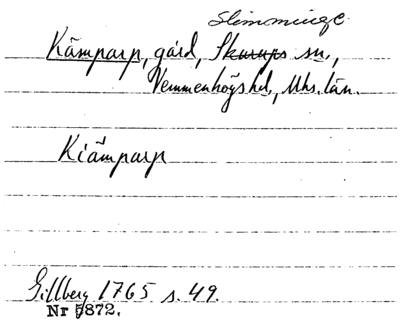 Slimminge
Kämparp, gård, Skurups sn.,
Vemmenhögs hd., Mhs. län.
Kiämparp
Gillberg 1765 s. 49.
Nr 5872.